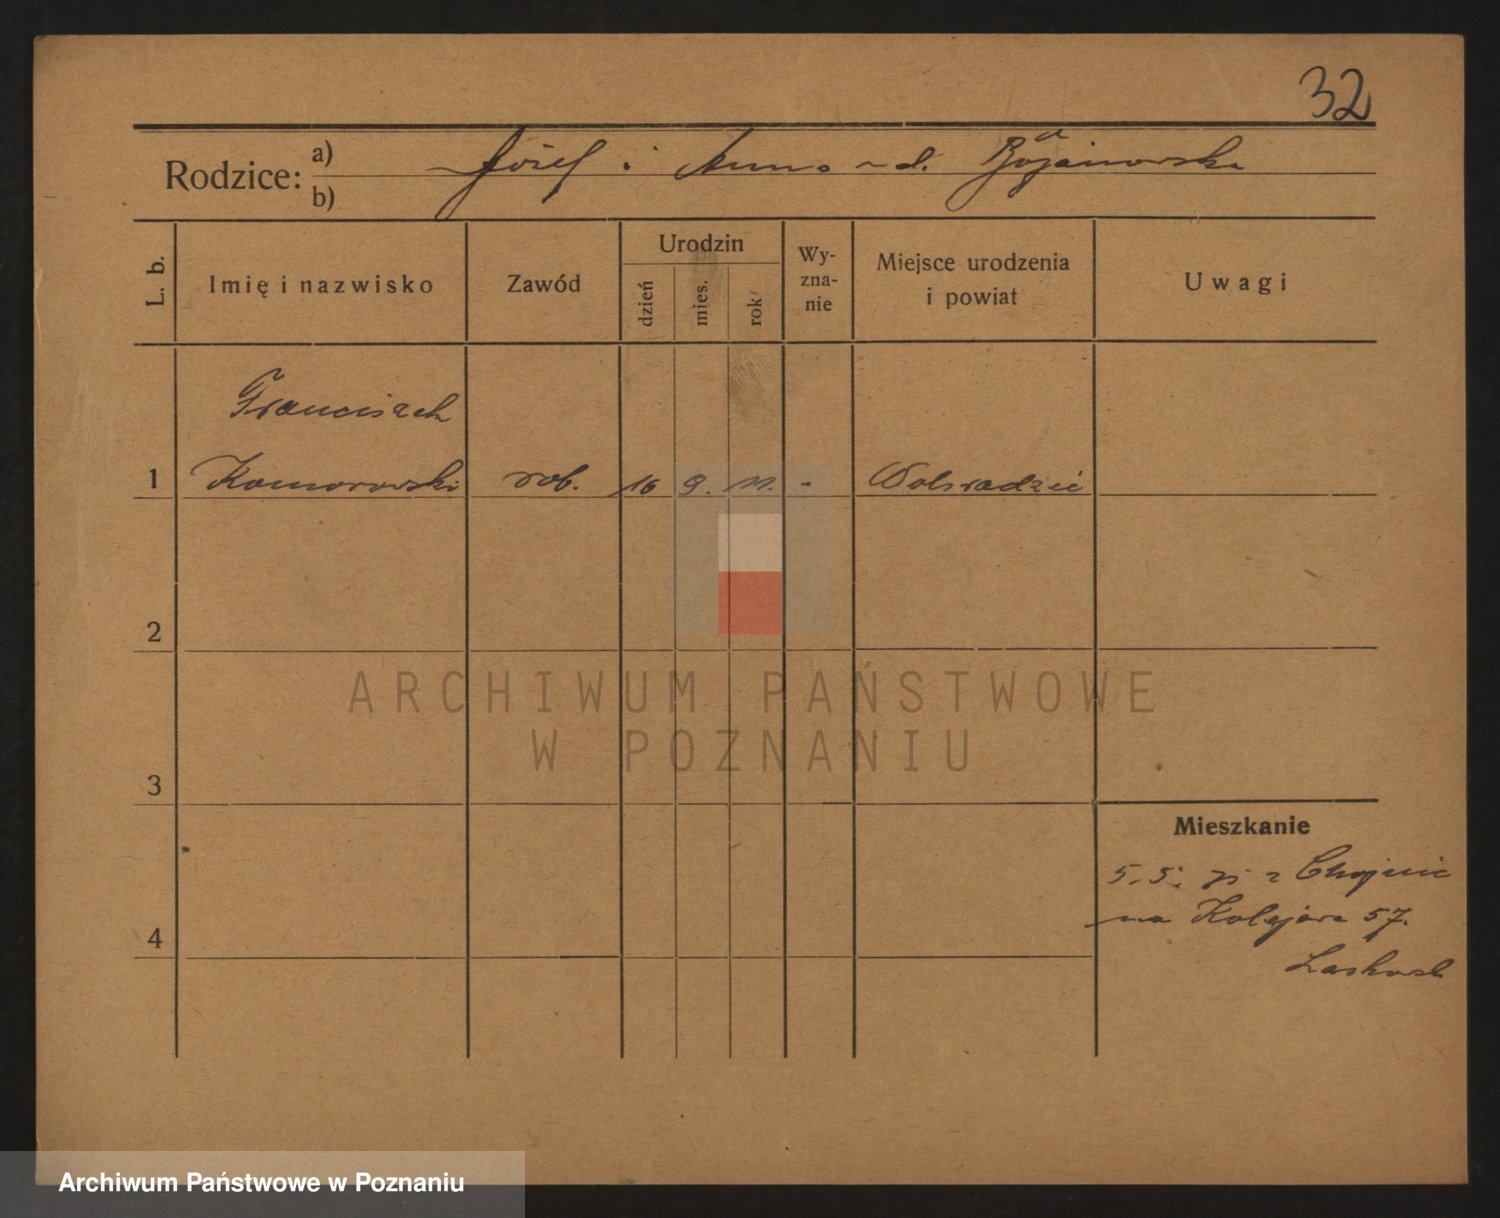 32
Rodzice: a) Józef i Anna
b)
L. b.
Imię i nazwisko
Zawód
Urodzin
dzień
mies.
rok
Wy-
zna-
nie
Miejsce urodzenia
i powiat
Uwagi
Franciszek
1 Komorowski rob. 16 9. 11. -
2
3
4
Mieszkanie
5.5. z Chojnic
na Kolejowa 57.
ARCHIWUM PAŃSTWOWE
W POZNANIU
Archiwum Państwowe w Poznaniu